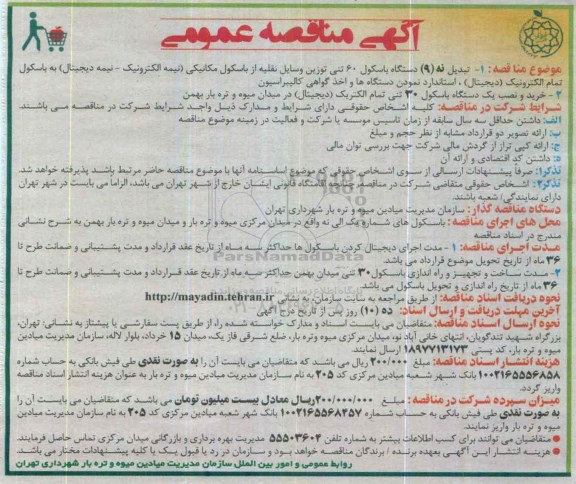 آگهی مناقصه عمومی
موضوع مناقصه: ۱- تبدیل نه (۹) دستگاه باسکول ۶۰ تنی توزین وسایل نقلیه از باسکول مکانیکی (نیمه الکترونیک - نیمه دیجیتال) به باسکول
تمام الکترونیک (دیجیتال) ، استاندارد نمودن دستگاه ها و اخذ گواهی کالیبراسیون
۲- خرید و نصب یک دستگاه باسکول ۳۰ تنی تمام الکتریک (دیجیتال) در میدان میوه و تره بار بهمن
شرایط شرکت در مناقصه: کلیه اشخاص حقوقی دارای شرایط و مدارک ذیل واجد شرایط شرکت در مناقصه می باشند.
الف: داشتن حداقل سه سال سابقه از زمان تاسیس موسسه یا شرکت و فعالیت در زمینه موضوع مناقصه
ب: ارائه تصویر دو قرارداد مشابه از نظر حجم و مبلغ
ج: ارائه کپی تراز از گردش مالی شرکت جهت بررسی توان مالی
ه: داشتن کد اقتصادی و ارائه آن
تذکر۱: صرفاً پیشنهادات ارسالی از سوی اشخاص حقوقی که موضوع اساسنامه آنها با موضوع مناقصه حاضر مرتبط باشد پذیرفته خواهد شد.
تذکر۲: اشخاص حقوقی متقاضی شرکت در مناقصه حاضر که اقامتگاه قانونی ایشان خارج از شهر تهران می باشد، الزاماً می بایست در شهر تهران
دارای نمایندگی/ شعبه باشند.
دستگاه مناقصه گذار: سازمان مدیریت میادین میوه و تره بار شهرداری تهران
محل های اجرای مناقصه: باسکول های شماره یک الی نه واقع در میدان مرکزی میوه و تره بار و میدان میوه و تره بار بهمن به شرح نشانی
مندرج در اسناد مناقصه
مدت اجرای مناقصه: ۱- مدت اجرای دیجیتال کردن باسکول ها حداکثر سه ماه از تاریخ عقد قرارداد و مدت پشتیبانی و ضمانت طرح تا
۳۶ ماه از تاریخ تحویل موضوع قرارداد می باشد.
۲- مدت ساخت و تجهیز و راه اندازی باسکول ۳۰ تنی میدان بهمن حداکثر سه ماه از تاریخ عقد قرارداد و مدت پشتیبانی و ضمانت طرح تا
۳۶ ماه از تاریخ راه اندازی و تحویل باسکول می باشد.
نحوه دریافت اسناد مناقصه: از طریق مراجعه به سایت سازمان، به نشانی http://mayadin.tehran.ir
آخرین مهلت دریافت و ارسال اسناد: ده (۱۰) روز پس از تاریخ درج آگهی
نحوه ارسال اسناد مناقصه: متقاضیان می بایست اسناد و مدارک خواسته شده را، از طریق پست سفارشی یا پیشتاز به نشانی: تهران،
بزرگراه شهید تندگویان، انتهای خانی آباد نو، میدان مرکزی میوه وتره بار، ضلع شرقی فاز یک، میدان ۱۵ خرداد، بلوار لاله، سازمان مدیریت میادین
میوه و تره بار، کد پستی ۱۸۹۷۷۱۳۱۷۳ ارسال نمایند.
هزینه انتشار اسناد مناقصه: مبلغ ۲۰۰/۰۰۰ ریال می باشد که متقاضیان می بایست آن را به صورت نقدی طی فیش بانکی به حساب شماره
۱۰۰۲۱۶۵۵۶۸۵۸ بانک شهر شعبه میادین مرکزی کد ۲۰۵ به نام سازمان مدیریت میادین میوه و تره بار به عنوان هزینه انتشار اسناد مناقصه
واریز گردد.
میزان سپرده شرکت در مناقصه: مبلغ ۲۰۰/۰۰۰/۰۰۰ریال معادل بیست میلیون تومان می باشد که متقاضیان می بایست آن را
به صورت نقدی طی فیش بانکی به حساب شماره ۱۰۰۲۱۶۵۵۶۸۴۵۷ بانک شهر شعبه میادین مرکزی کد ۲۰۵ به نام سازمان مدیریت میادین
میوه و تره بار واریز نمایند.
متقاضیان می توانند برای کسب اطلاعات بیشتر به شماره تلفن ۵۵۵۰۳۶۰۲ مدیریت بهره برداری و بازرگانی میدان مرکزی تماس حاصل فرمایند.
هزینه انتشار این آگهی بعهده برنده / برندگان مناقصه خواهد بود و سازمان در رد یا قبول یک یا کلیه پیشنهادات مختار می باشد.
روابط عمومی و امور بین الملل سازمان مدیریت میادین میوه و تره بار شهرداری تهران
ParsNamadData